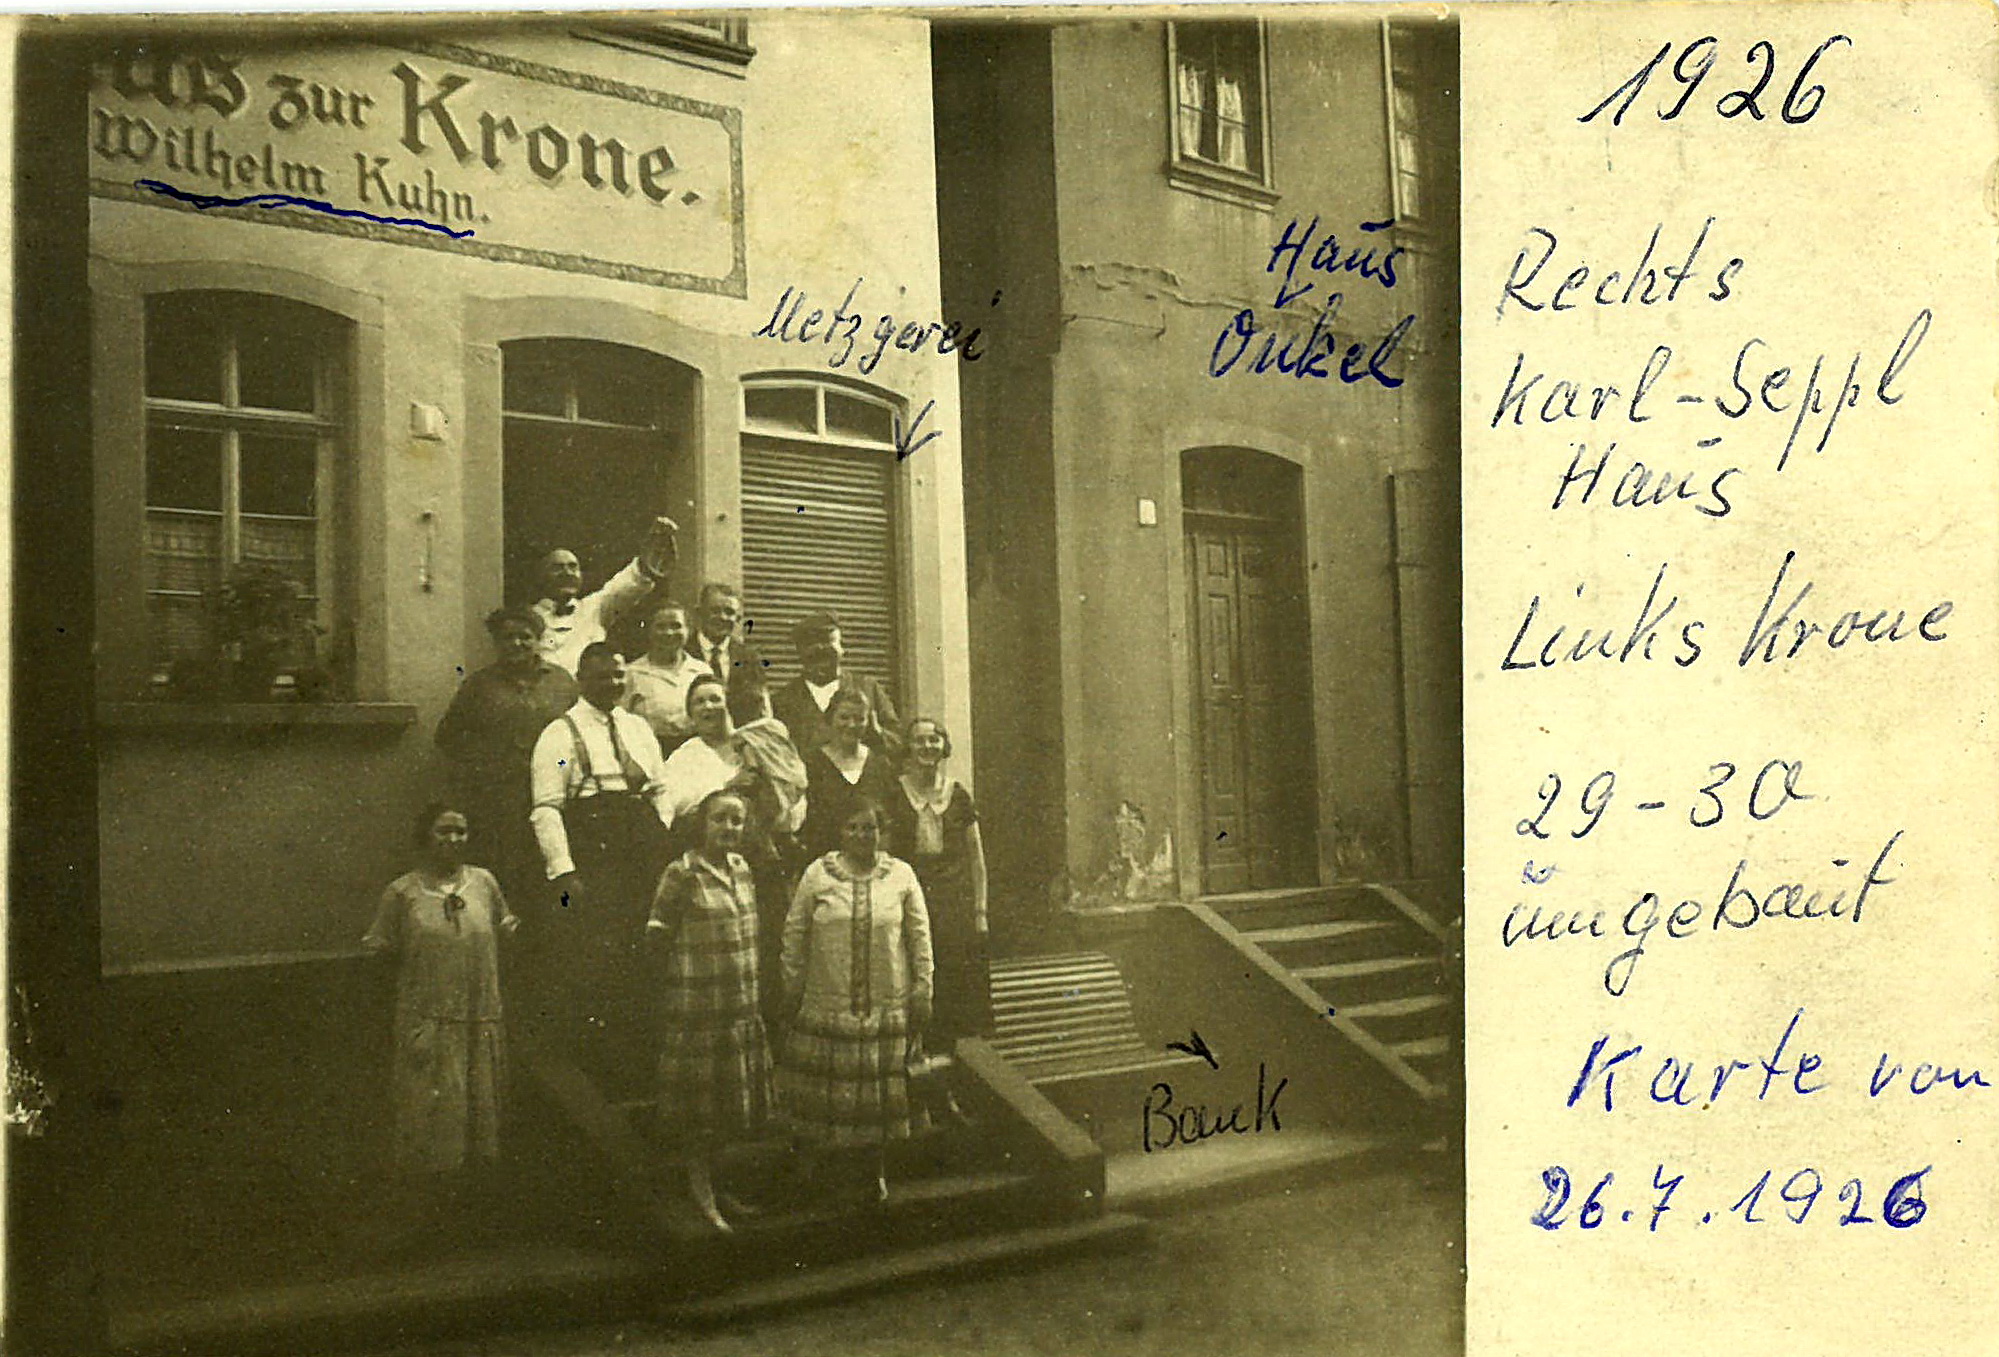 us zur Krone.
Wilhelm Kuhn.
Metzgerei
Haus
Onkel
Bank
1926
Rechts
Karl-Seppl
Haus
Links Krone
29-30
umgebaut
Karte von
26.7.1926